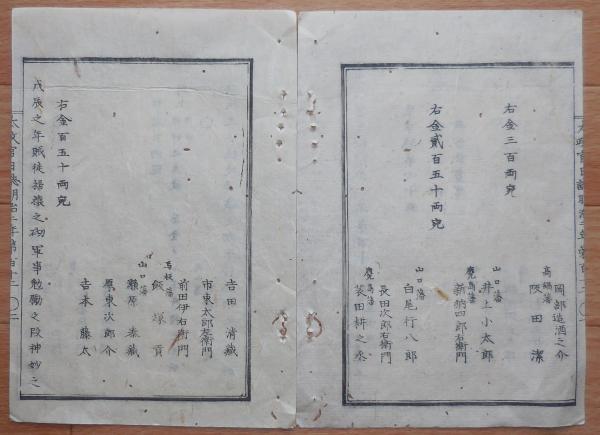 岡部造酒之介
高鍋藩
坂田潔
右金三百両宛
山口藩
井上小太郎
鹿島藩
新納四郎右衛門
山口藩
白尾行八郎
右金貳百五十両宛
長田次郎右衛門
萩田耕之丞
吉田清蔵
市東太郎右衛門
前田伊右衛門
高板藩
飯塚貢
山口藩
瀬原泰蔵
原東次郎介
吉本藤太
右金百五十両宛
戊辰之年賊徒掃攘之砌軍事勉勵之段神妙之
太政官日誌明治二年第百十二